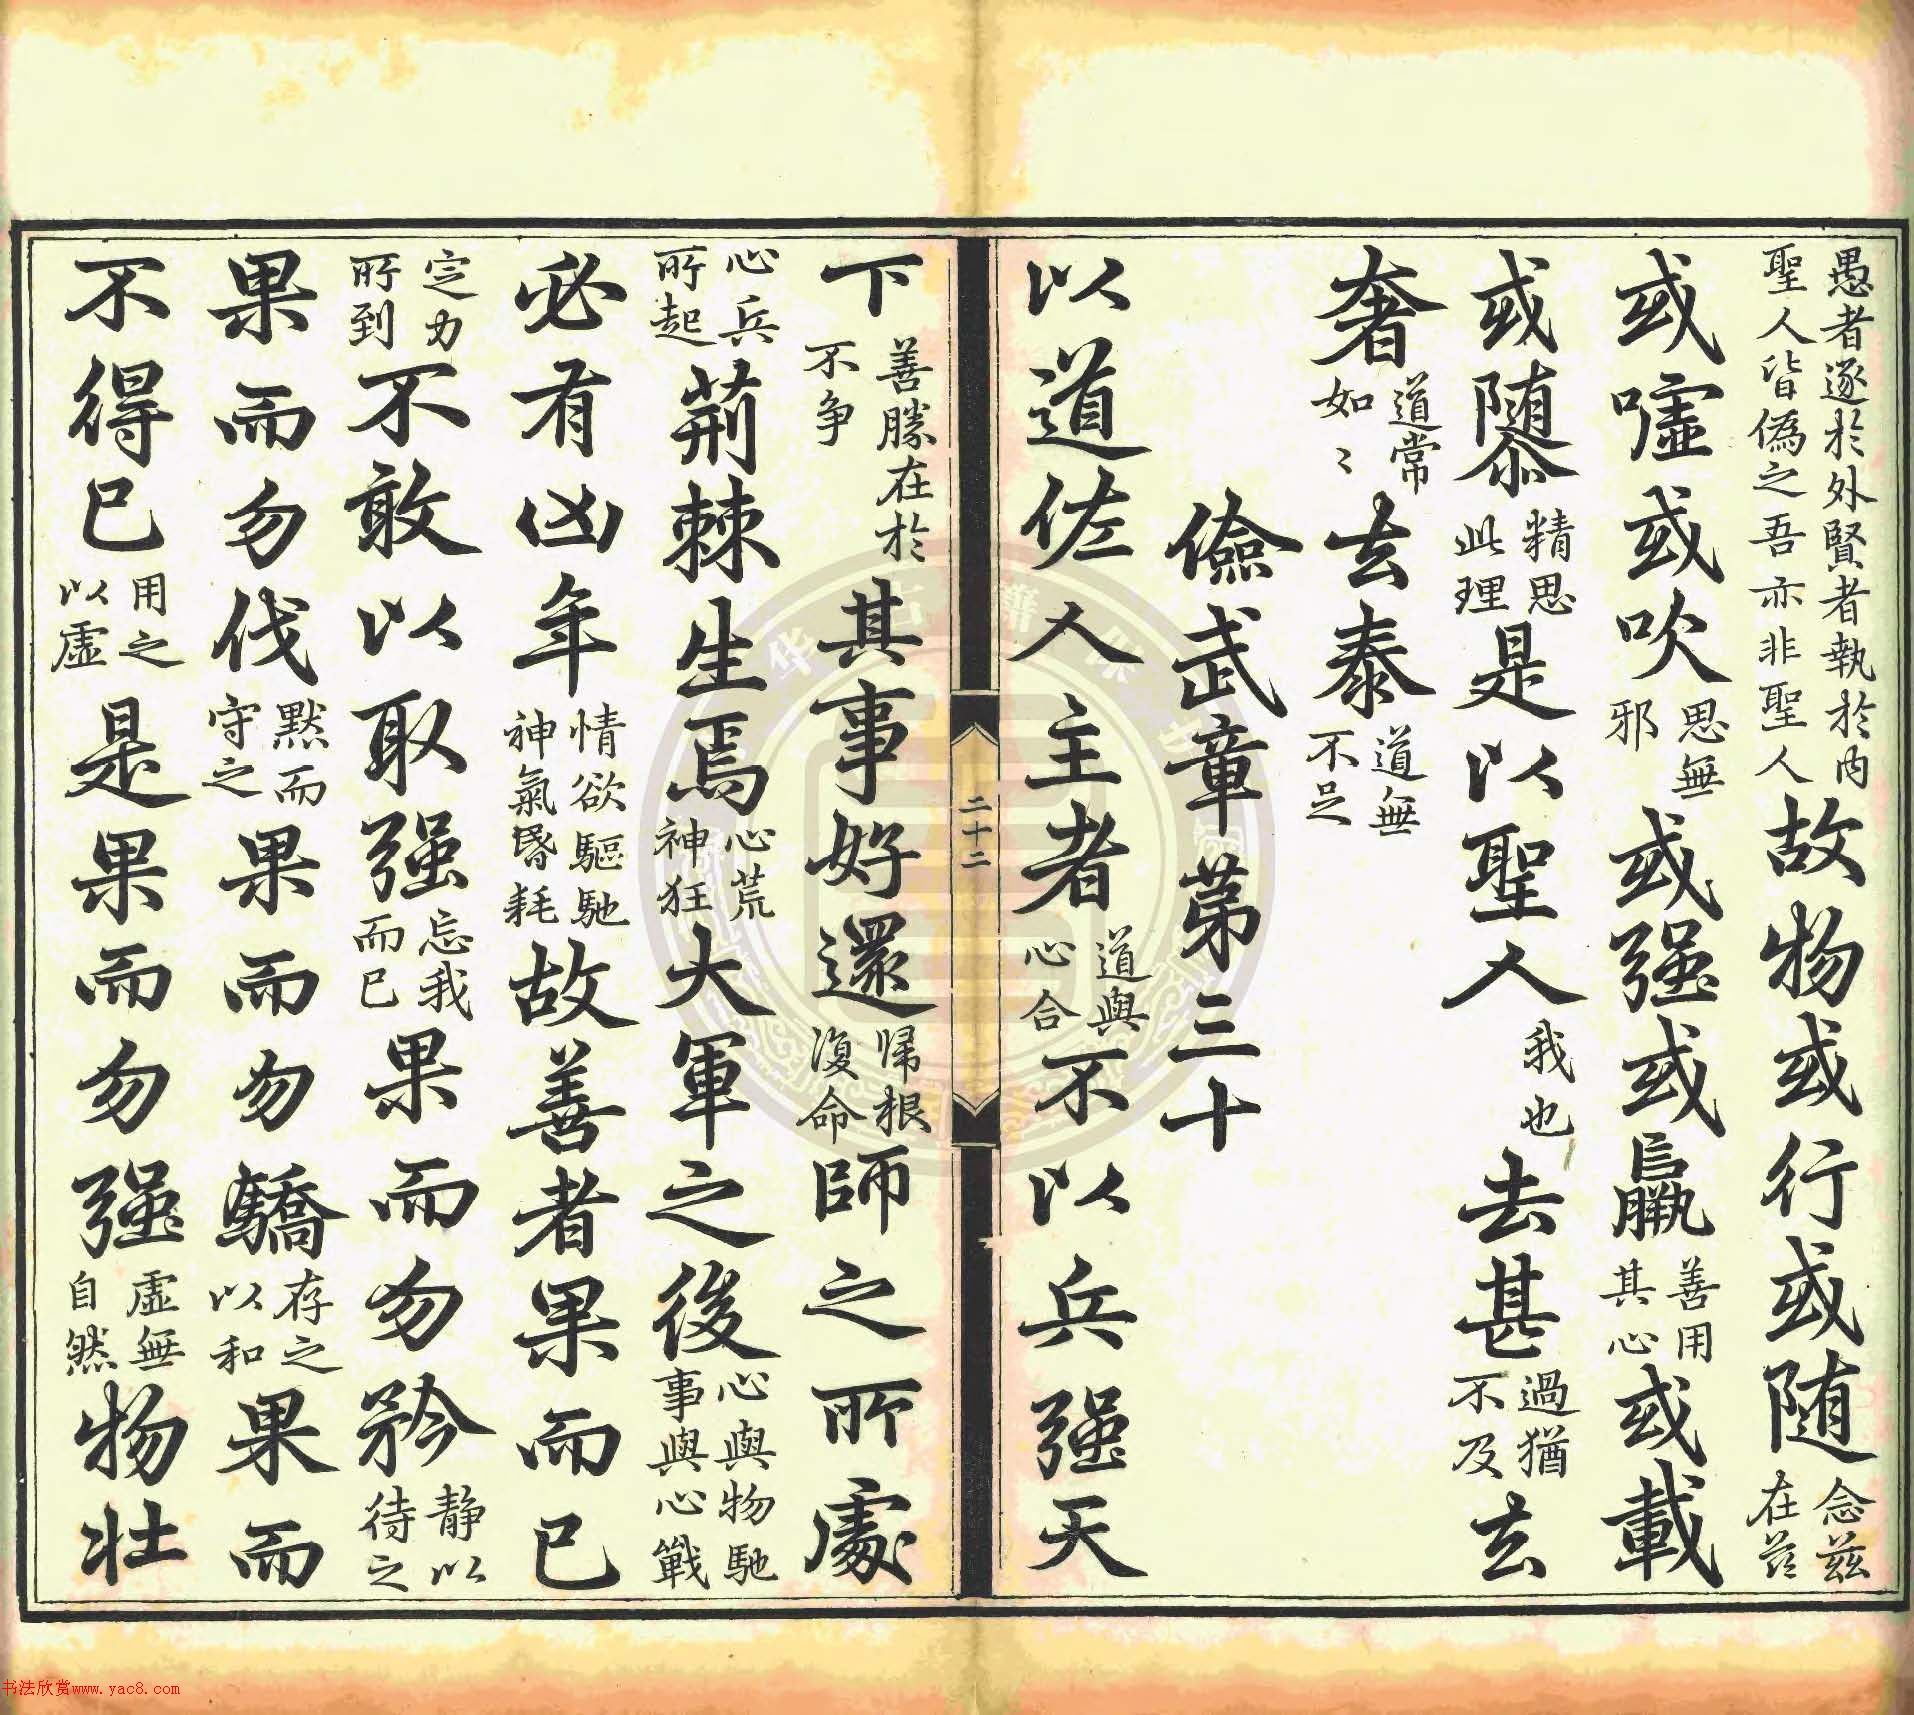 愚者逐於外賢者執於内聖人皆偽之吾亦非聖人故物或行或随念兹在兹
或嘘或吹思無邪或强或羸善用其心或載
或隳精思此理是以聖人我也去甚過猶不及去
奢道常如〻去泰道無不足
儉武章第三十
以道佐人主者道與心合不以兵强天
二十二
下善勝在於不争其事好還歸根復命師之所處
心兵所起荊棘生焉心荒神狂大軍之後心與物馳事與心戰
必有凶年情欲驅馳神氣昏耗故善者果而已
定力所到不敢以取强忘我而已果而勿矜静以待之
果而勿伐默而守之果而勿驕存之以和果而
不得已用之以虚是果而勿强虚無自然物壯
书法欣赏www.yac8.com